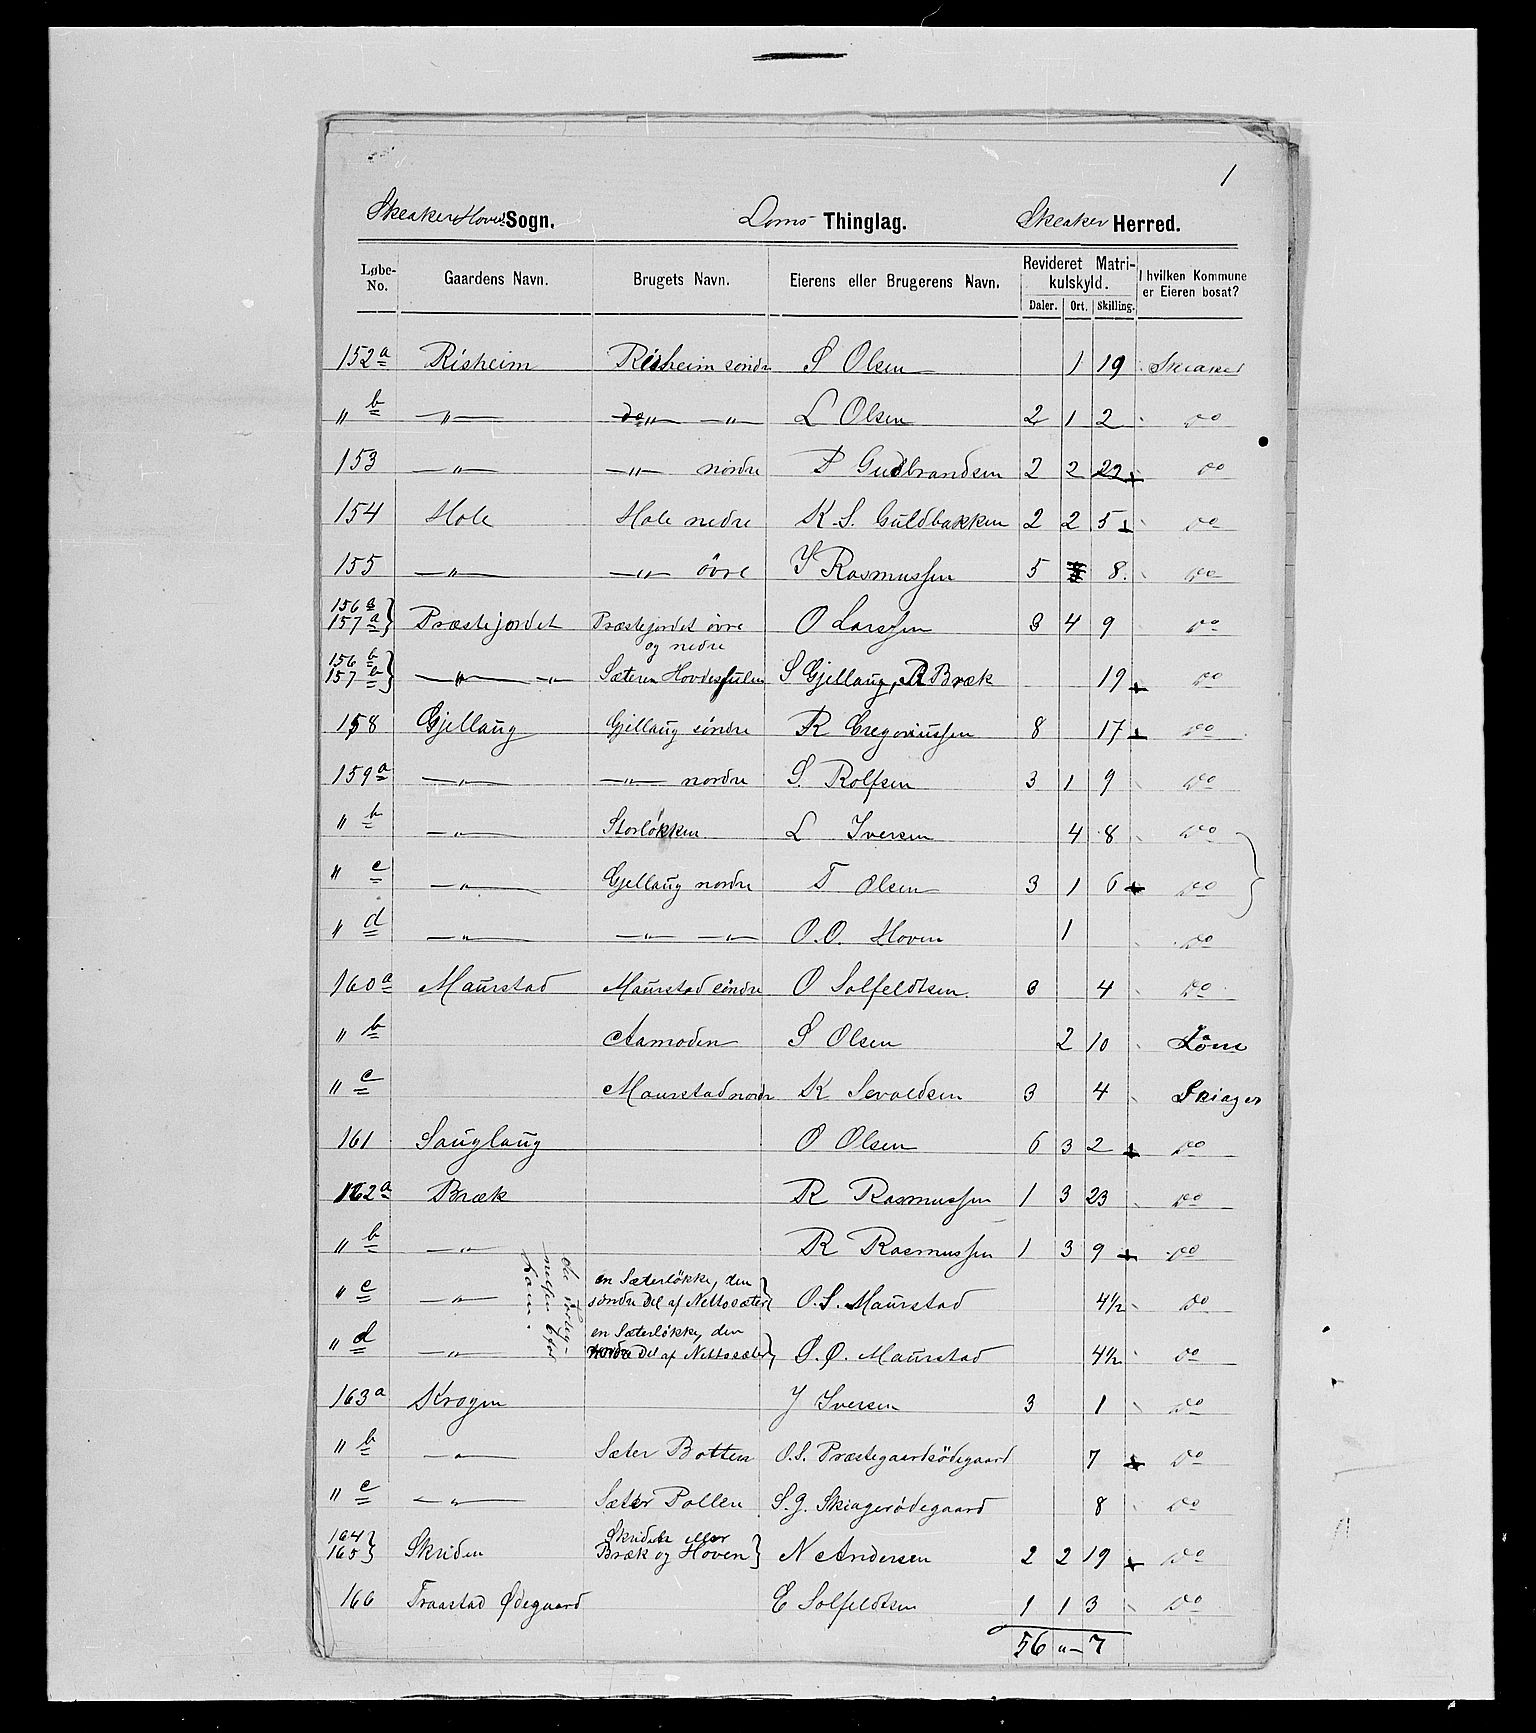 1
Skeaker Hoved Sogn. Loms Thinglag. Skeaker Herred.
Løbe-No. Gaardens Navn. Brugets Navn. Eierens eller Brugerens Navn. Revideret Matrikulskyld. I hvilken Kommune er Eieren bosat?
Daler. Ort. Skilling.
152 a Risheim Risheim söndr S Olsen 1 19 Skeaker
" b —"— do" —"— L Olsen 2 1 2 do
153 —"— —"— nordre P Gudbrandsen 2 2 22 do
154 Hole Hole nedre K. S. Guldbakken 2 2 5 do
155 —"— —"— övre I Rasmussen 5 8 do
156 a
157 a } Præstejordet Præstejordet övre og nedre O Larssen 3 4 9 do
156 b
157 b } —"— —"— Sæteren Hovdesfulen S Gjellaug, R Bræk 19 do
158 Gjellaug Gjellaug söndre R Gregoriussen 8 17 do
159 a —"— —"— nordre S. Rolfsen 3 1 9 do
" b —"— Storløkken L Iversen 4 8 do
" c —"— Gjellaug nordre T Olsen 3 1 6 do
" d —"— —"— —"— O. O. Hoven 1 do
160 a Maurstad Maurstad söndre O Solfeldtsen 3 4 do
" b Aamoden S Olsen 2 10 Lom
" c Maurstad nordr K Sevaldsen 3 4 Skiager
161 Sauglaug O Olsen 6 3 2 do
162 a Bræk R Rasmussen 1 3 23 do
" b —"— R Rasmussen 1 3 9 do
" c —"— en Sæterløkke, den söndre Del af Nettosæter } O. S. Maurstad 4½ do
" d —"— en Sæterløkke, den nordre Del af Nettosæter } O. O. Maurstad 4½ do
163 a Krogen J Iversen 3 1 do
" b —"— Sæter Botten O. S. Præstegaardsödegaard 7 do
" c —"— Sæter Pollen S. J. Skiagerødegaard 8 do
164
165 } Skriden Skriden eller Bræk og Hoven } N Andersen 2 2 19 do
166 Traastad Ødegaard E Solfeldtsen 1 1 3 do
56 "— 7